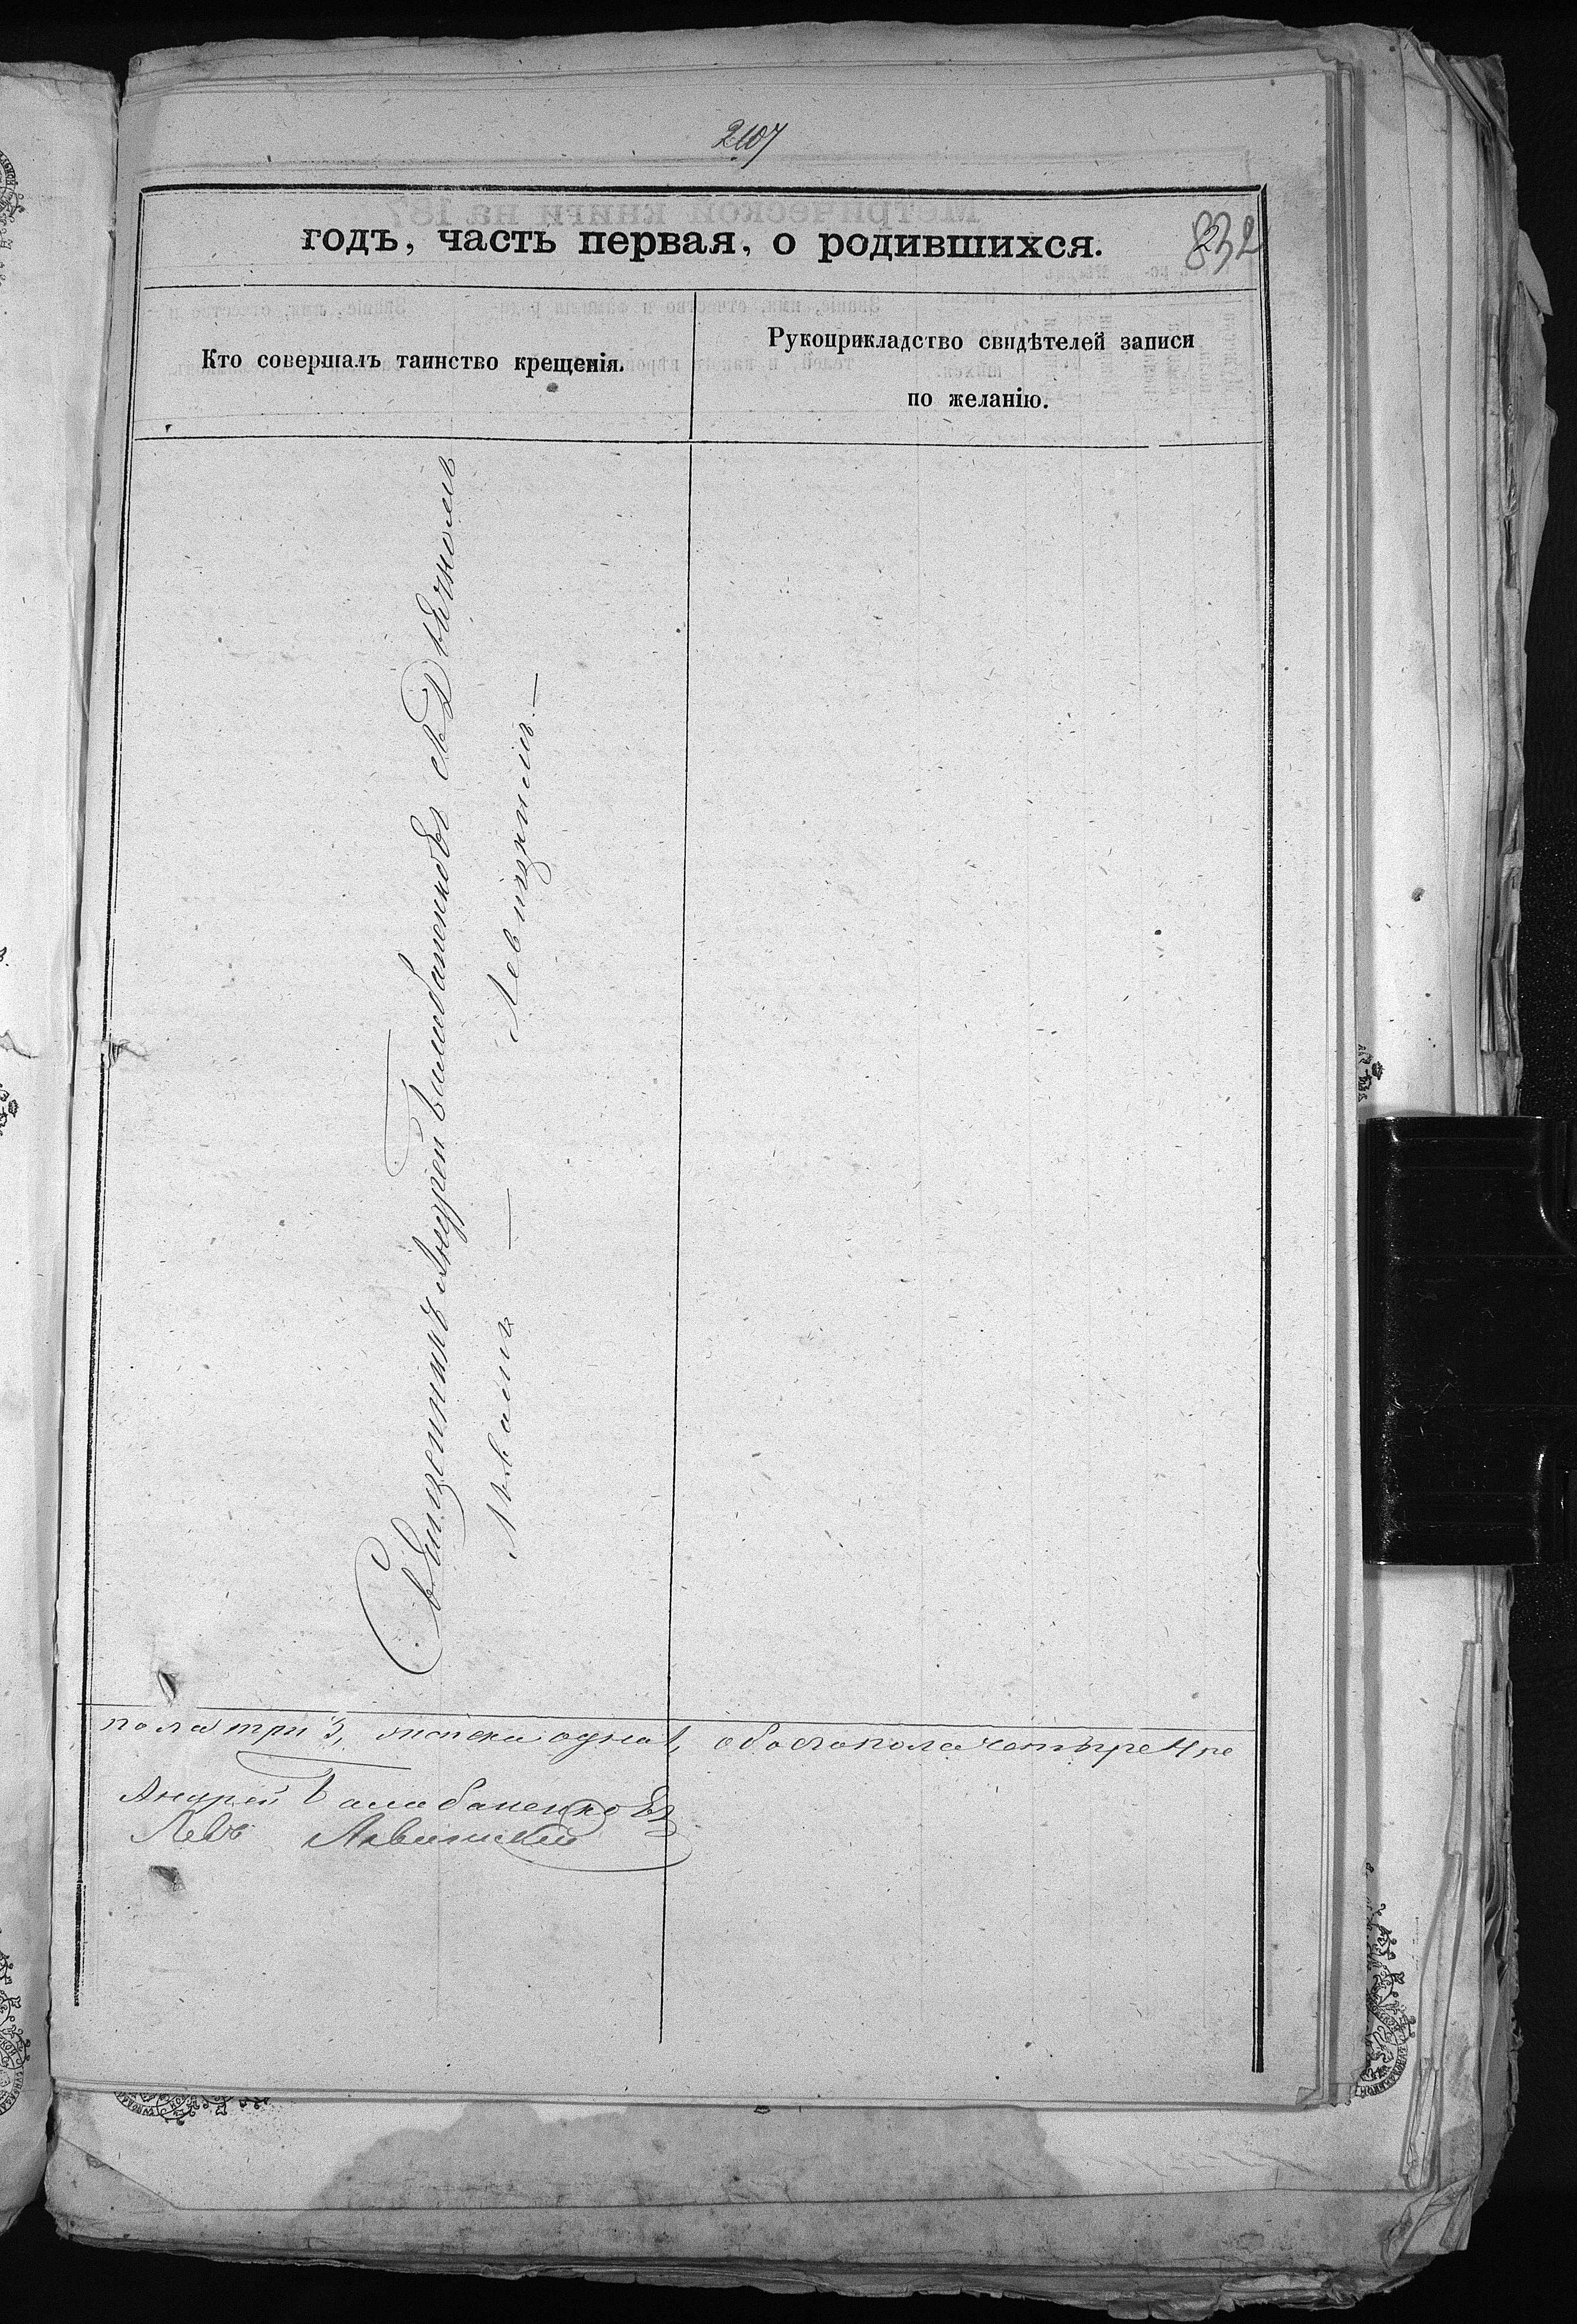 2107
годъ, часть первая, о родившихся.
832
Кто совершалъ таинство крещенія.
Рукоприкладство свидѣтелей записи
по желанію.
Священникъ Андрей Балабаненковъ съ Дьячкомъ
Львомъ — Левицкимъ. —
пола три 3, женска одна 1, обоего пола четыре 4 ре
Андрей Балабаненковъ
Левъ Левицкий